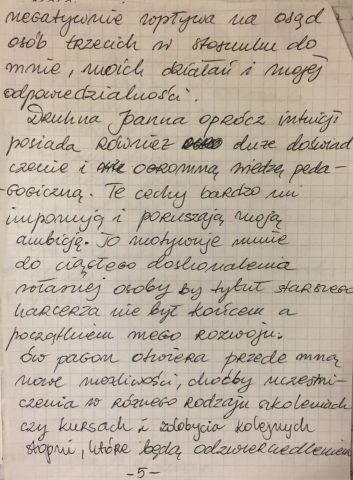 negatywnie wpływa na osąd
osób trzecich w stosunku do
mnie, moich działań i mojej
odpowiedzialności.
Druhna Joanna oprócz intuicji
posiada również duże doświad
czenie i ogromną wiedzę peda-
gogiczną. Te cechy bardzo mi
imponują i poruszają moją
ambicję. To motywuje mnie
do ciągłego doskonalenia
własnej osoby by tytuł starszego
harcerza nie był końcem a
początkiem mego rozwoju.
Ów pagon otwiera przede mną
nowe możliwości, choćby uczestni-
czenia w różnego rodzaju szkoleniach
czy kursach i zdobycia kolejnych
stopni, które będą odzwierciedleniem
-5-